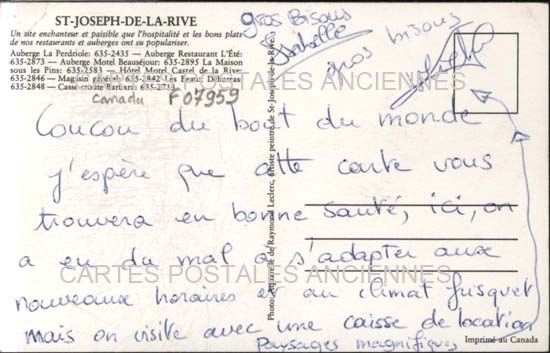 ST-JOSEPH-DE-LA-RIVE
Un site enchanteur et paisible que l'hospitalité et les bons plats
de nos restaurants et auberges ont su populariser.
Auberge La Perdriole: 635-2435 — Auberge Restaurant L'Été:
635-2873 — Auberge Motel Beauséjour: 635-2895 La Maison
sous les Pins: 635-2583 — Hôtel Motel Castel de la Rive:
635-2846 — Magasin général: 635-2842 Les Eaux
635-2848 — Casse-croûte Barbara: 635-2733
Canada F07959
gros Bisous
Isabelle
gros bisous
Coucou du bout du monde
j'espère que cette carte vous
trouvera en bonne santé, ici, on
a eu du mal à s'adapter aux
nouveaux horaires et au climat frisquet
mais on visite avec une caisse de location
Paysages magnifiques
CARTES POSTALES ANCIENNES
CARTES POSTALES ANCIENNES
Photo: Aquarelle de Raymond Leclerc, artiste peintre de St-Joseph-de-la-Rive.
Imprimé au Canada